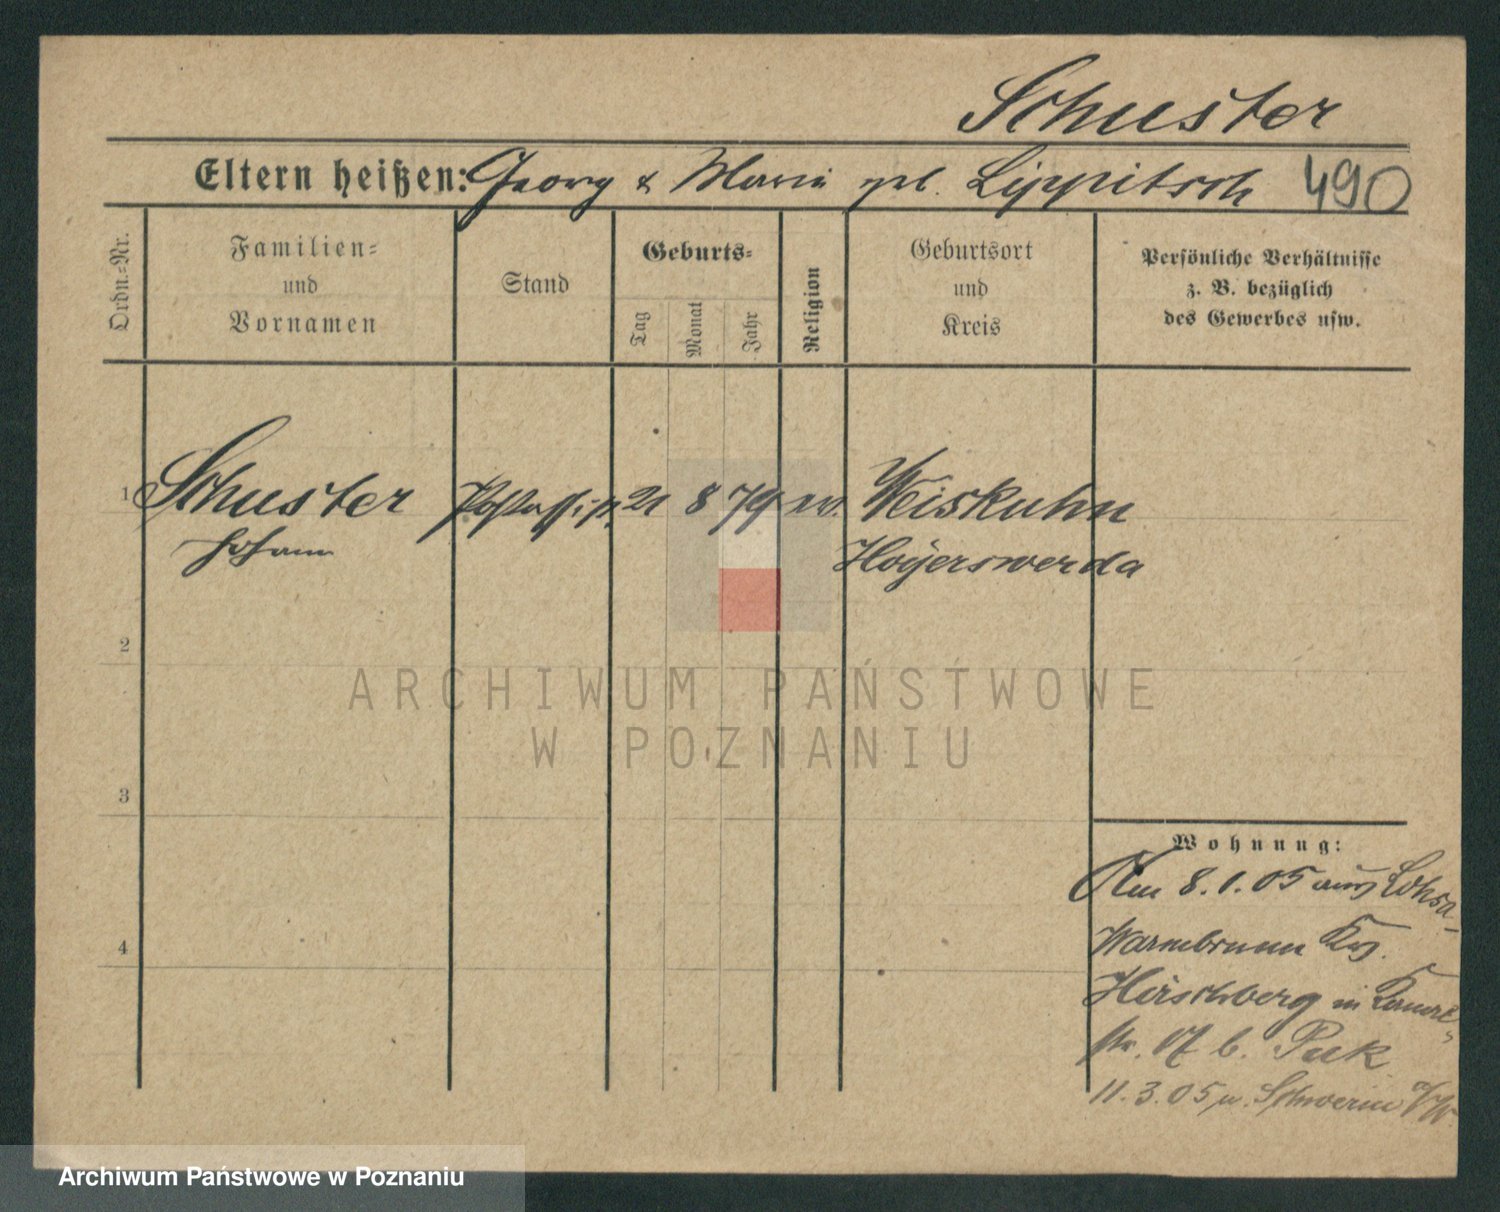 Schuster
Eltern heißen: Georg & Maria geb. Lippitsch 490
Ordn.-Nr.
Familien- und Vornamen
Stand
Geburts-
Tag
Monat
Jahr
Religion
Geburtsort und Kreis
Persönliche Verhältnisse
z. B. bezüglich
des Gewerbes usw.
1 Schuster 21 8 79 ev. Weiskuhn
Johann Hoyerswerda
2
ARCHIWUM PAŃSTWOWE
W POZNANIU
3
Wohnung:
Am 8.1.05 aus Lohsa-
4 Warmbrunn Krs.
Hirschberg in
str. 17 b.
11.3.05 n. Schwerin a/W.
Archiwum Państwowe w Poznaniu